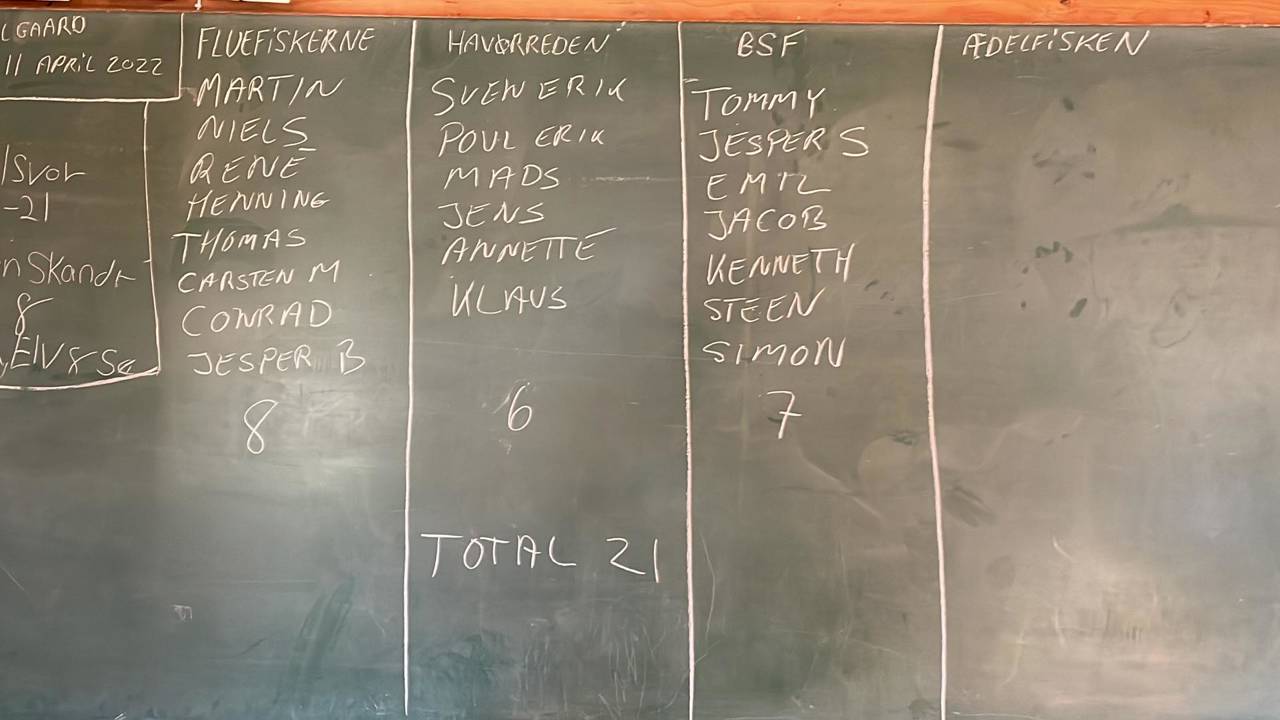 LGAARD
11 APRIL 2022
-21
n Skandr
8
FLUEFISKERNE
MARTIN
NIELS
RENE
HENNING
THOMAS
CARSTEN M
CONRAD
JESPER B
8
HAVØRREDEN
SVEN ERIK
POUL ERIK
MADS
JENS
ANNETTE
KLAUS
6
TOTAL 21
BSF
TOMMY
JESPER S
EMIL
JACOB
KENNETH
STEEN
SIMON
7
ÆDELFISKEN